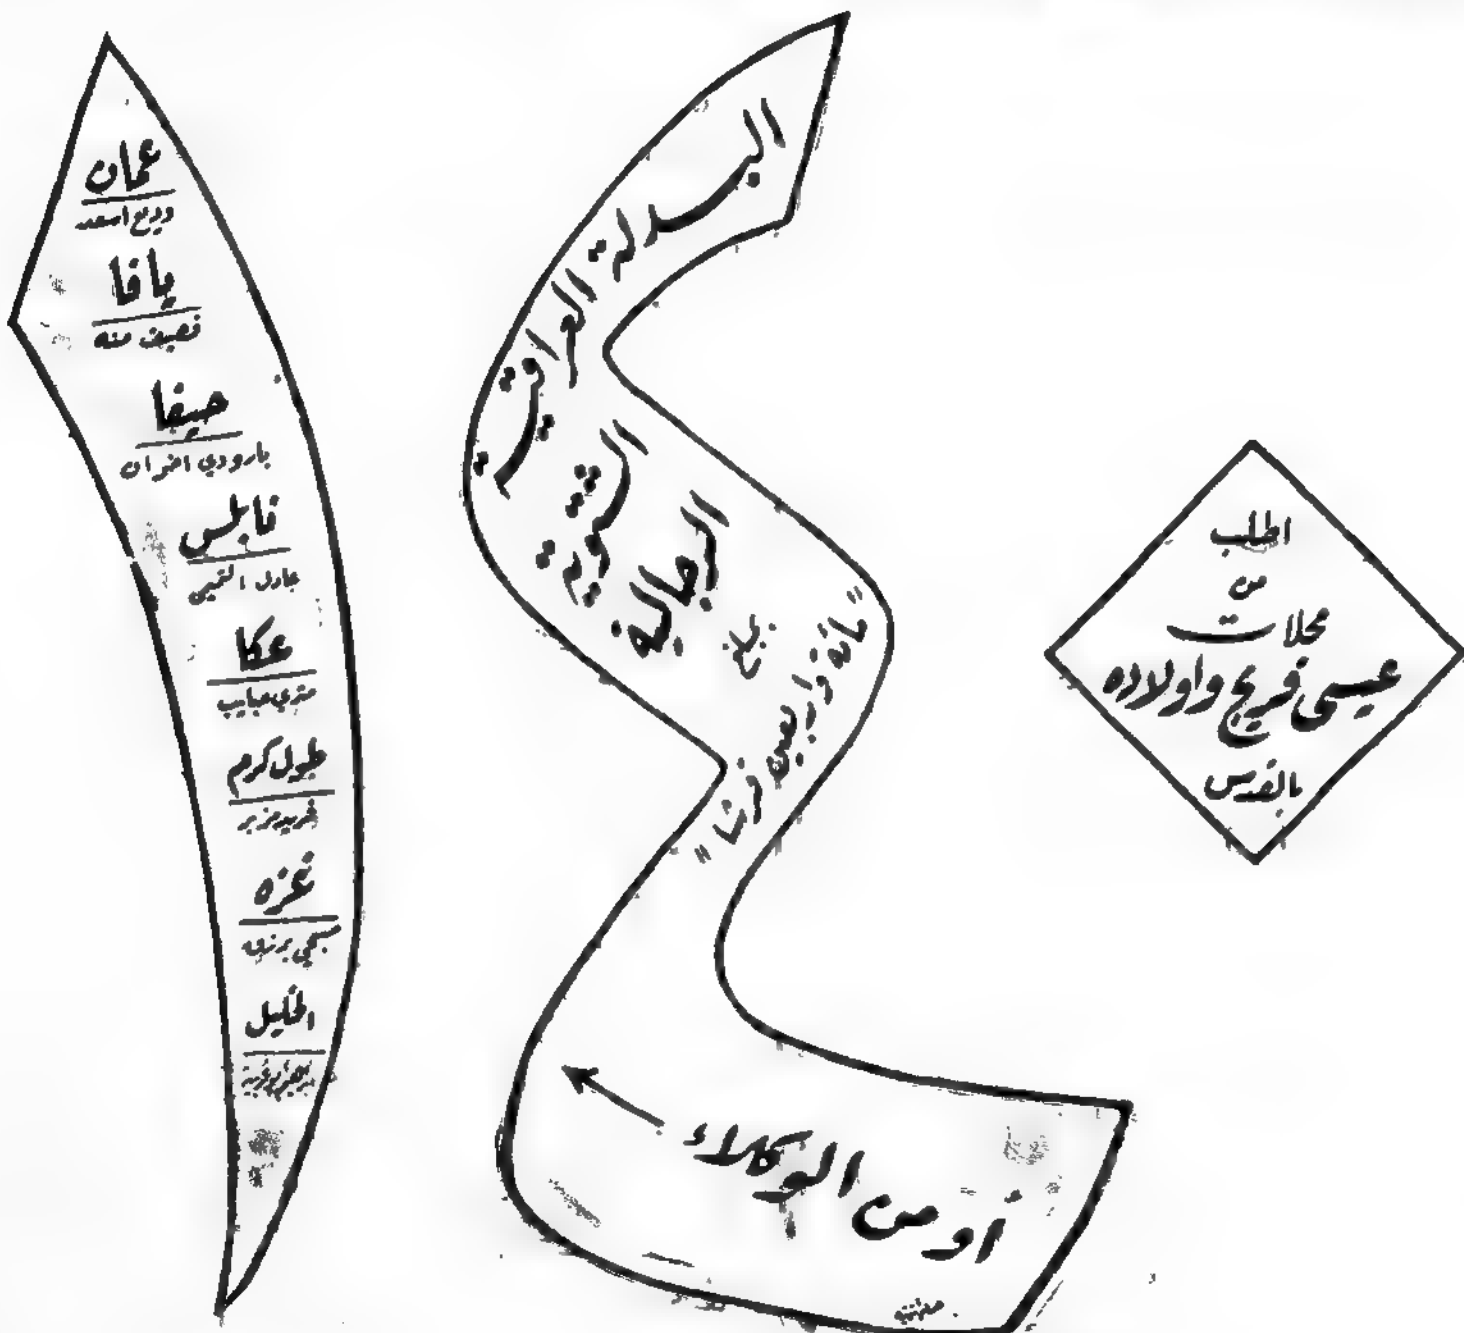 اطلب
من
محلات
عيسى فريج واولاده
بالقدس
البدلة العراقية
الشتوية
الرجالية
بمبلغ
"مائة واربعين قرشا"
أو من الوكلاء
عمان
وديع اسعد
يافا
حيفا
بارودي اخوان
نابلس
عادل
عكا
متري حبايب
طول كرم
فريد
غزه
الخليل